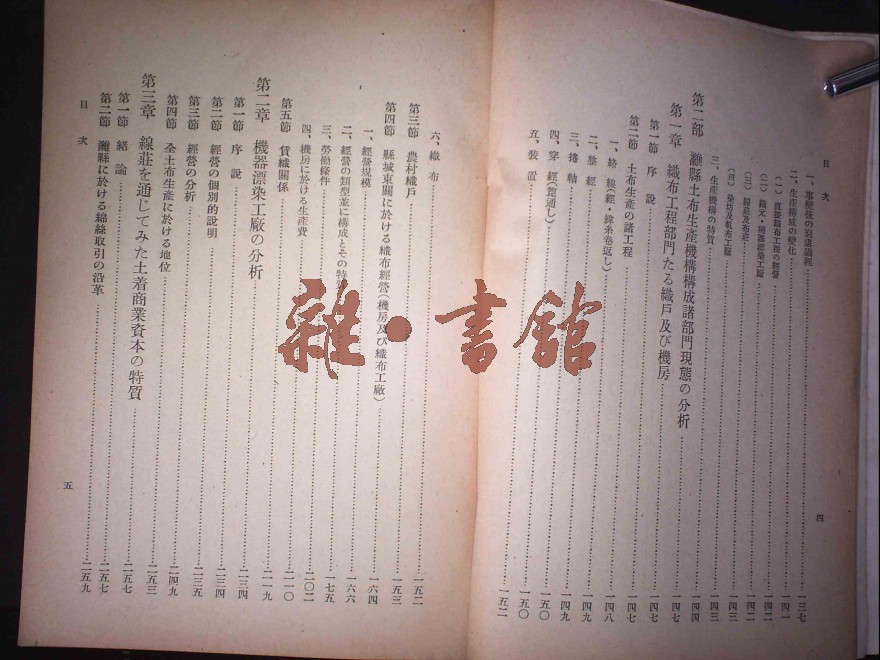 目次
一、事變後の衰退過程……一三七
二、生產構成の變化……一四一
(一) 直接織布工程の經營……一四二
(二) 織元・機器漂染工廠……一四二
(三) 線莊及布莊……一四三
(四) 染坊及軋布工廠……一四三
三、生產機構の特質……一四三
第二部 濰縣土布生產機構構成諸部門現態の分析……一四四
第一章 織布工程部門たる織戶及び機房……一四七
第一節 序說……一四七
第二節 土布生產の諸工程……一四七
一、絡線(經・緯糸卷返し)……一四八
二、整經……一四九
三、捲軸……一四九
四、穿經(筬通し)……一五〇
五、裝置……一五〇
四
六、織布……一五二
第三節 農村織戶……一五二
第四節 縣城東關に於ける織布經營(機房及び織布工廠)……一五三
一、經營規模……一六四
二、經營の類型並に構成とその特……一六六
三、勞働條件……一七五
四、機房に於ける生產費……二〇二
第五節 賃織關係……二一〇
第二章 機器漂染工廠の分析……二一九
第一節 序說……二三四
第二節 經營の個別的說明……二三四
第三節 經營の分析……二三五
第四節 全土布生產に於ける地位……二四九
第三章 線莊を通じてみた土着商業資本の特質……二五三
第一節 緖論……二五七
第二節 濰縣に於ける綿絲取引の沿革……二五七
二五九
目次
五
雜·書館